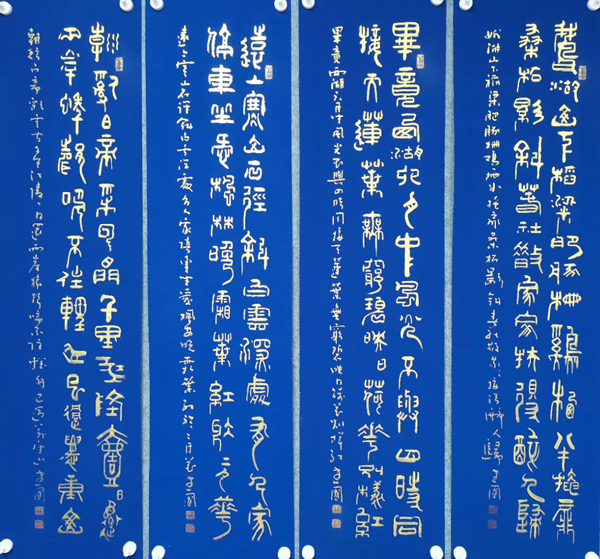 鵞湖山下稻粱肥豚栅鷄栖半掩扉
桑柘影斜春社散家家扶得醉人歸
鵞湖山下稻粱肥豚栅鷄栖半掩扉桑柘影斜春社散家家扶得醉人歸
畢竟西湖六月中風光不與四時同
接天蓮葉無窮碧映日荷花別樣紅
畢竟西湖六月中風光不與四時同接天蓮葉無窮碧映日荷花別樣紅
遠上寒山石徑斜白雲深處有人家
停車坐愛楓林晚霜葉紅於二月花
遠上寒山石徑斜白雲深處有人家停車坐愛楓林晚霜葉紅於二月花
朝辭白帝彩雲間千里江陵一日還
兩岸猿聲啼不住輕舟已過萬重山
朝辭白帝彩雲間千里江陵一日還兩岸猿聲啼不住輕舟已過萬重山